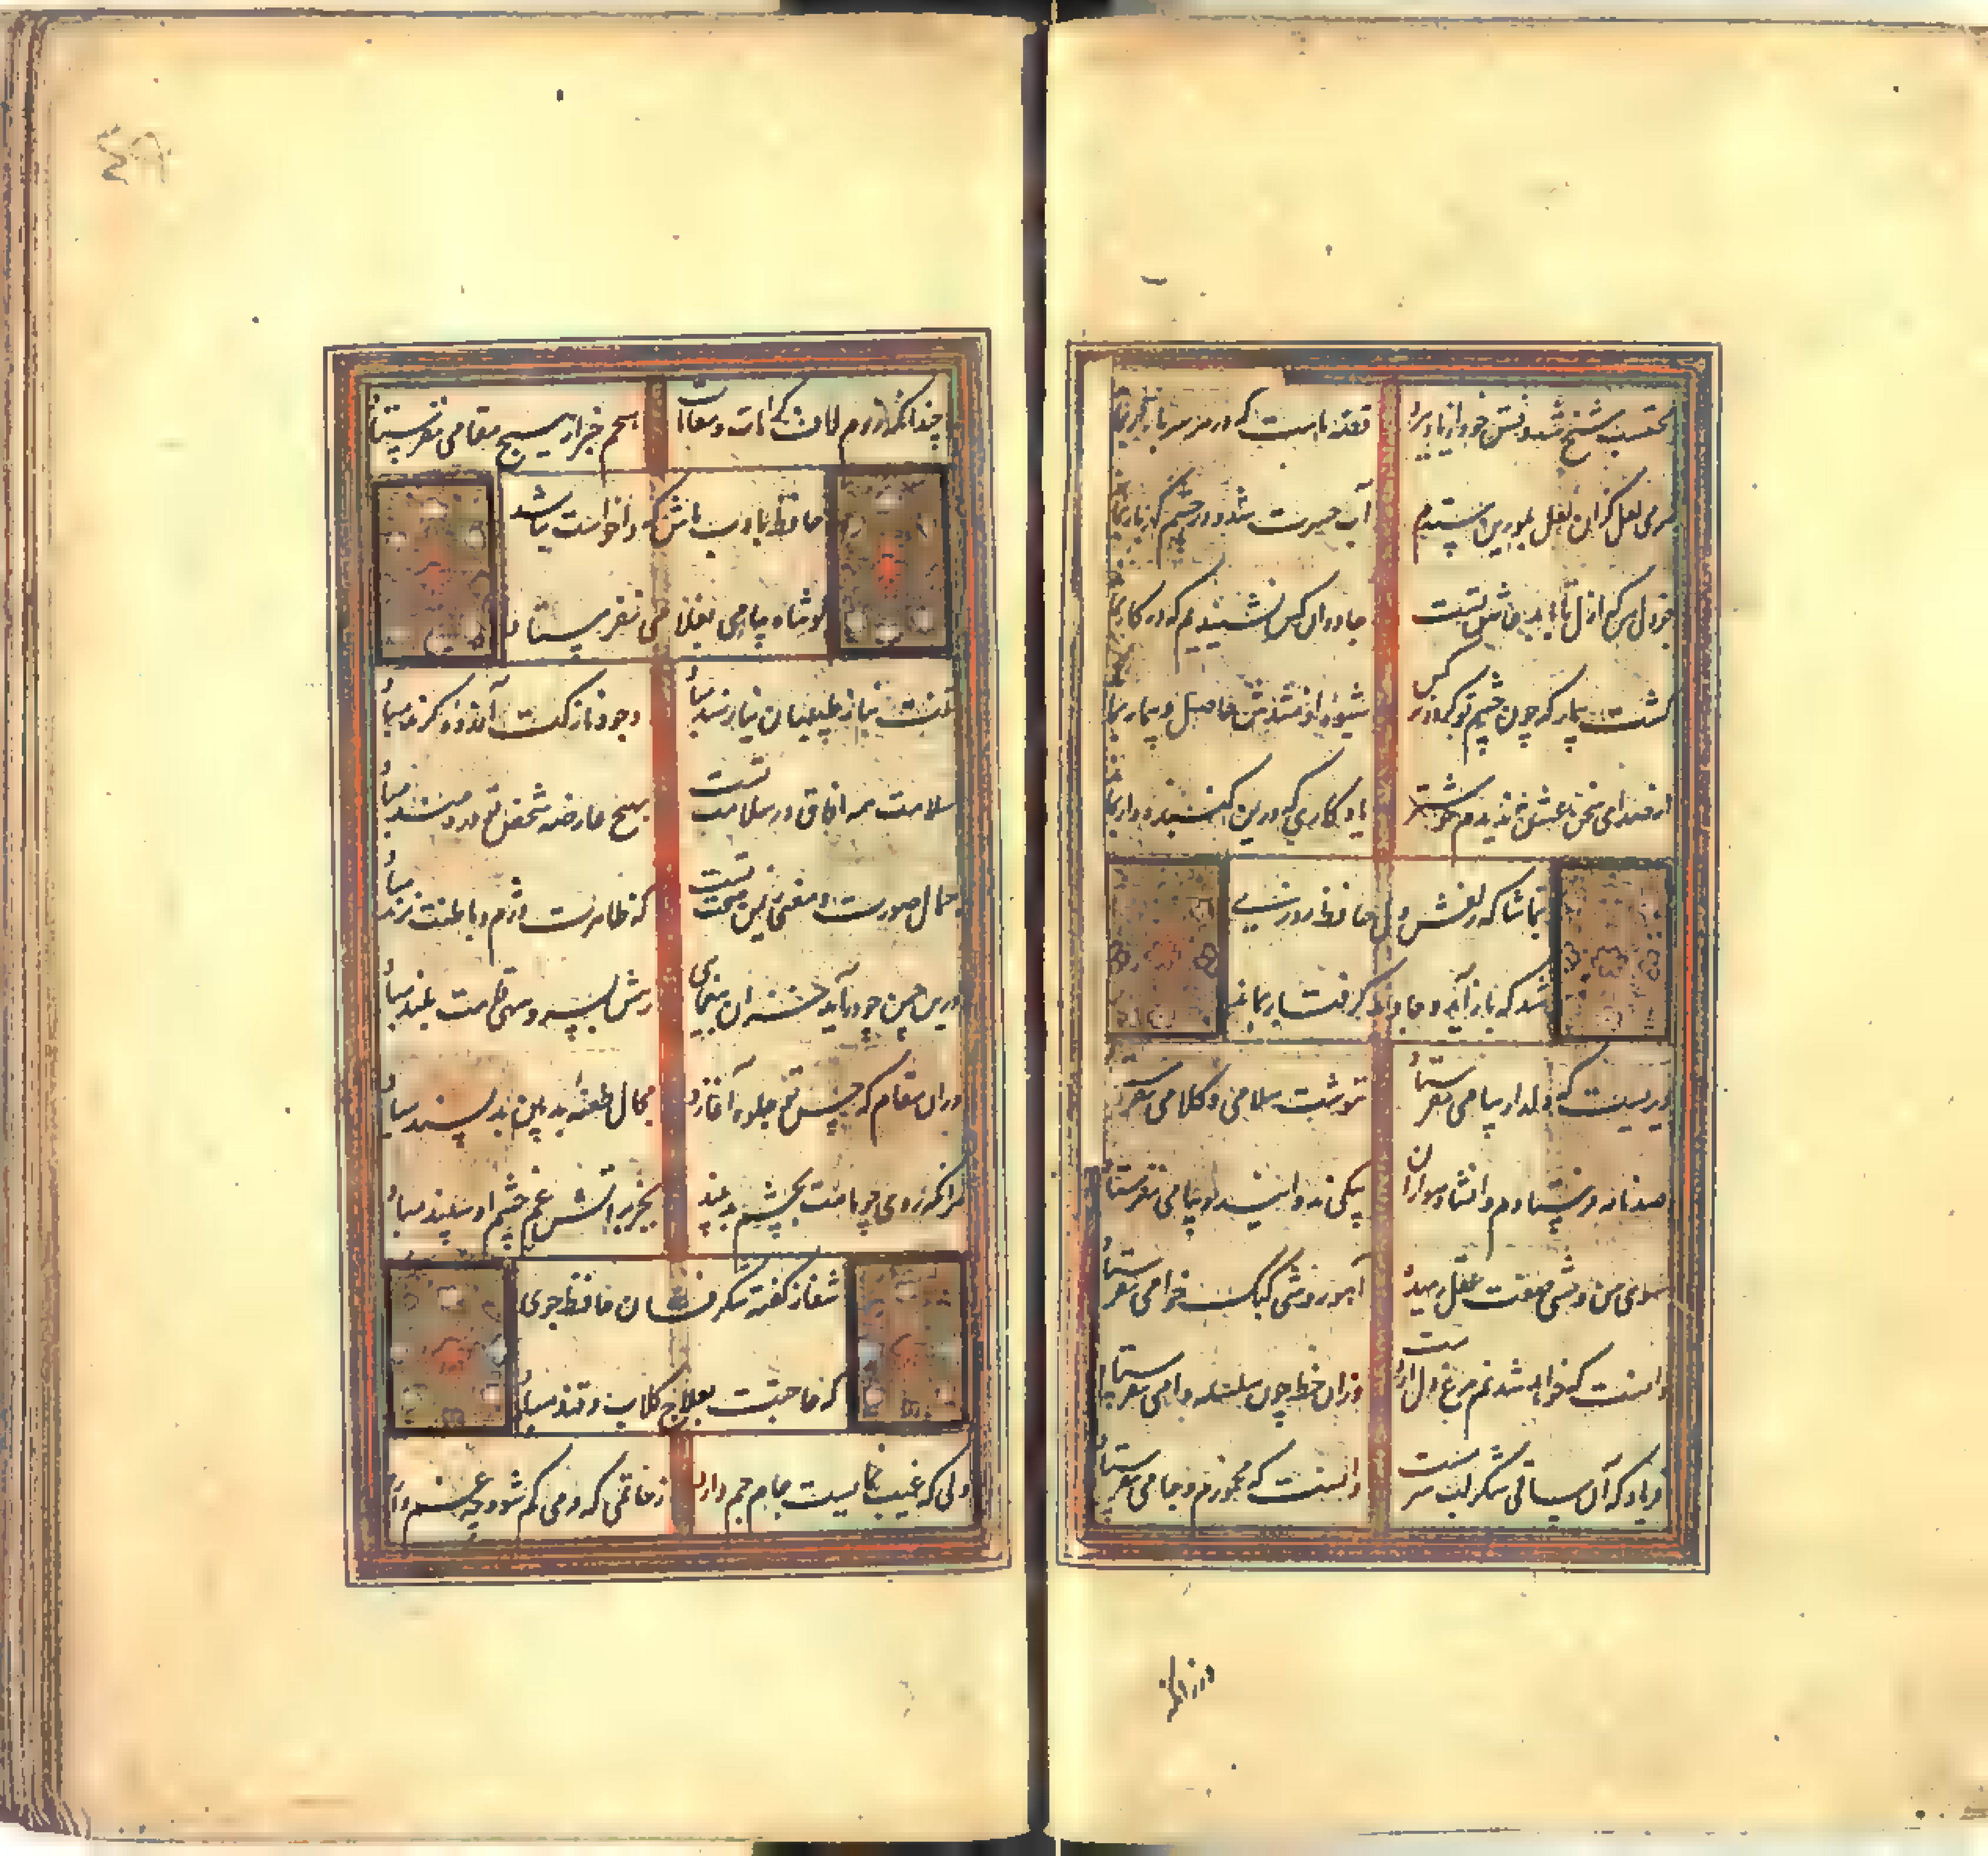 محتسب شیخ شد و فسق خود از یاد ببرد
قصه ماست که در هر سر بازار بماند
آب حسرت شد و در چشم گهربار بماند
جز دل من کز ازل تا به ابد عاشق تست
جاودان کس نشنیدیم که در کار بماند
گشت بیمار که چون چشم تو گردد نرگس
شیوه او نشدش حاصل و بیمار بماند
از صدای سخن عشق ندیدم خوشتر
یادگاری که درین گنبد دوار بماند
بتماشا که زلفش دل حافظ روزی
شد که باز آید و جاوید گرفتار بماند
دیریست که دلدار پیامی نفرستاد
ننوشت سلامی و کلامی نفرستاد
صد نامه فرستادم و آن شاه سواران
پیکی ندوانید و پیامی نفرستاد
سوی من وحشی صفت عقل رمیده
آهو روشی کبک خرامی نفرستاد
دانست که خواهد شدنم مرغ دل از دست
وزان خط چون سلسله دامی نفرستاد
فریاد که آن ساقی شکر لب سرمست
دانست که مخمورم و جامی نفرستاد
٤٩
چندانکه زدم لاف کرامات و مقامات
هیچم خبر از هیچ مقامی نفرستاد
حافظ بادب باش که واخواست نباشد
گر شاه پیامی بغلامی نفرستاد
تنت بناز طبیبان نیازمند مباد
وجود نازکت آزرده گزند مباد
سلامت همه آفاق در سلامت تست
بهیچ عارضه شخص تو دردمند مباد
جمال صورت و معنی ز یمن صحت تست
که ظاهرت دژم و باطنت نژند مباد
درین چمن چو درآید خزان بیغمای
رهش بسرو سهی قامت بلند مباد
در آن مقام که حسن تو جلوه آغازد
مجال طعنه بدبین و بدپسند مباد
هر آنکه روی چو ماهت بچشم بد بیند
بجز بر آتش غم چشم او سپند مباد
شفا ز گفته شکرفشان حافظ جوی
که حاجتت بعلاج گلاب و قند مباد
دلی که غیب نمایست جام جم دارد
ز خاتمی که دمی گم شود چه غم دارد